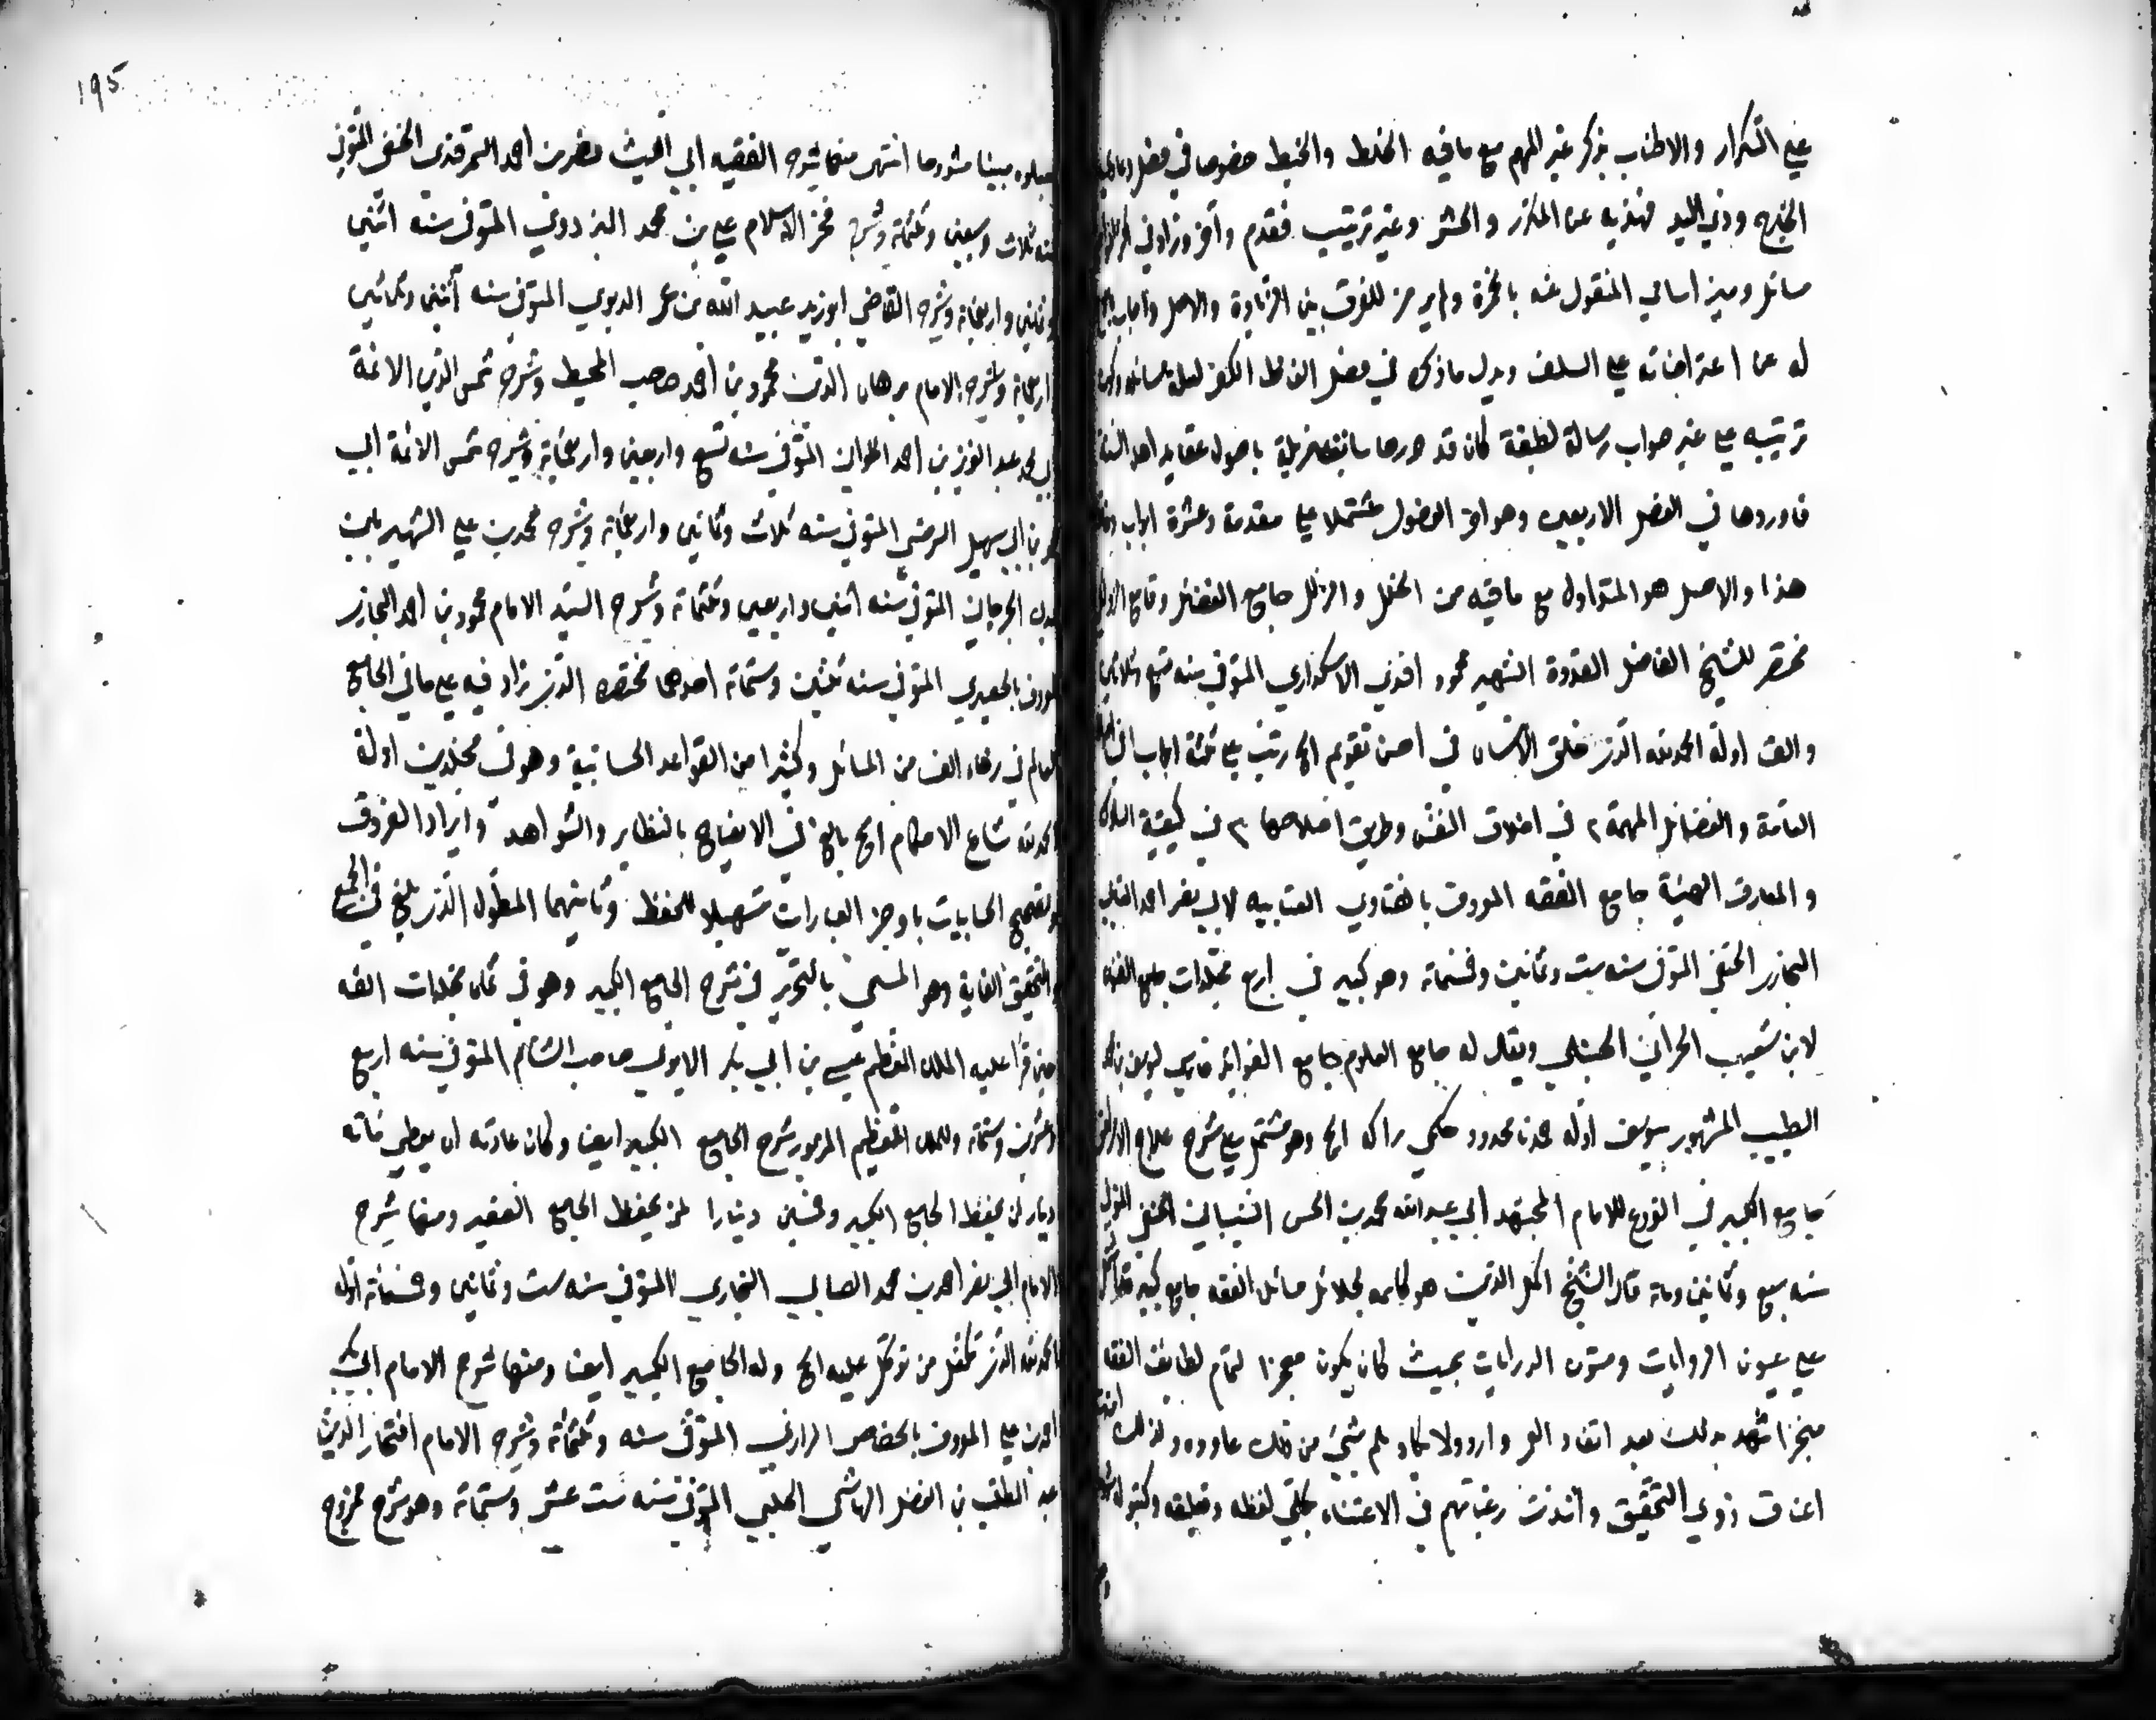 علي التكرار والاطناب بذكر غير المهم مع ما فيه الخلط والخبط خصوصا في فصل
الخارج وذي اليد فهذبه عن المكرر والحشو وغير ترتيب فقدم وآخر وزاد في
مسائل وميز اسامي المنقول عنه بالحمرة ولم يرمز للفرق بين الزيادة والاصل واجاب
له عن اعتراضاته علي السلف وبدل ما ذكره في فصل الفاظ الكفر
ترتيبه علي غير صواب رسالة لطيفة كان قد حررها سابقا باصول عقايد اهل السنة
فاوردها في الفصل الاربعين وهو اخر الفصول مشتملا علي مقدمة وعشرة ابواب
هذا والاصل هو المتداول مع ما فيه من الخلل والزلل جامع الفضائل وقامع الرذائل
مختصر للشيخ الفاضل القدوة الشهير محمود افندي الاسكداري المتوفي سنه وثلاثين
والف اوله الحمد لله الذي خلق الانسان في احسن تقويم الخ رتب علي ثلثة ابواب
العامة والفضائل المهمة ٢ في اخلاق النفس وطريق اصلاحها ٣ في كيفية السلوك
والمعارف الهمية جامع الفقه المعروف بالفتاوي العتابيه لابي نصر احمد العتابي
البخاري الحنفي المتوفي سنه ست وثمانين وخمسمائة وهو كبير في اربع مجلدات جامع
لابن شعيب الحراني الحنبلي ويقال له جامع العلوم جامع الفوايد فارسي ليوسف بن محمد
الطبيب المشهور بيوسف اوله حكمي را كه الخ وهو مشتمل علي شرح علاج الامراض
جامع الكبير في الفروع للامام المجتهد ابي عبد الله محمد بن الحسن الشيباني الحنفي المتوفي
سنه سبع وثمانين ومائة قال الشيخ اكمل الدين هو كاسمه لجلائل مسائل الفقه جامع كبير قد اشتمل
علي عيون الروايات ومتون الدرايات بحيث كاد يكون معجزا لتمام لطايف الفقه
منجزا شهد بذلك بعد انفاد العمر وارده ولا يكاد يلم بشيء من ذلك عاودوه ولذلك امتدت
اعناق ذوي التحقيق واشتدت رغباتهم في الاعتناء بحلي لفظه وتطبيقه وكتبوا له
١٩٥
وجعلوه مبينا مشروحا انتهي منها شرح الفقيه ابي الليث نصر بن احمد السمرقندي الحنفي المتوفي
سنه ثلاث وسبعين وثلثمائة وشرح فخر الاسلام علي بن محمد البزدوي المتوفي سنه اثنتي
وثمانين واربعمائة وشرح القاضي ابو زيد عبيد الله بن عمر الدبوسي المتوفي سنه اثنتي وثلاثين
اربعمائة وشرح الامام برهان الدين محمود بن احمد صاحب المحيط وشرح شمس الدين الائمة
ابي محمد عبد العزيز بن احمد الحلواني المتوفي سنه تسع واربعين واربعمائة وشرح شمس الائمة ابي
بكر بن ابي سهيل السرخسي المتوفي سنه ثلاث وثمانين واربعمائة وشرح محمد بن علي الشهير بابن
عبدك الجرجاني المتوفي سنه اثنتي واربعين وثلثمائة وشرح السيد الامام محمود بن احمد البخاري
المعروف بالحصيري المتوفي سنه ثلثين وستمائة احدهما مختصره الذي زاد فيه علي ما في الجامع
العالم في زهاء الف من المسائل وكثيرا من القواعد الحسابية وهو في مجلدين اوله
الحمد لله شارع الاحكام الخ بالغ في الايضاح بالنظاير والشواهد وايراد الفروق
وتصحيح الحسابيات باوجز العبارات تسهيلا للحفظ وثانيهما المطول الذي بلغ في الجمع
والتحقيق الغاية وهو المسمي بالتحرير في شرح الجامع الكبير وهو في ثمان مجلدات الفه
حين قرا عليه الملك المعظم عيسي بن ابي بكر الايوبي صاحب الشام المتوفي سنه اربع
وعشرين وستمائة وللملك المعظم المزبور شرح الجامع الكبير ايضا وكان عادته ان يعطي مائة
دينار لمن يحفظ الجامع الكبير وخمسين دينارا لمن يحفظ الجامع الصغير ومنها شرح
الامام ابي نصر احمد بن محمد العتابي البخاري المتوفي سنه ست وثمانين وخمسمائة اوله
الحمد لله الذي تكفل من توكل عليه الخ وله الجامع الكبير ايضا ومنها شرح الامام ابي بكر
احمد بن علي المعروف بالجصاص الرازي المتوفي سنه وثلثمائة وشرح الامام افتخار الدين
عبد المطلب بن الفضل الهاشمي الحلبي المتوفي سنه ست عشر وستمائة وهو شرح ممزوج